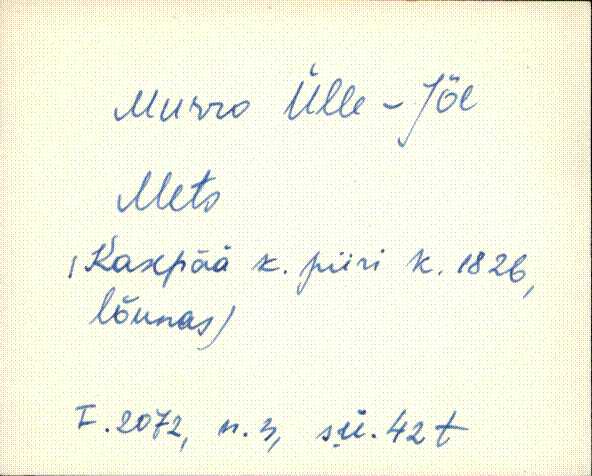 Murro Ülle-Jõe
Mets
(Kasepää k. piiri k. 1826,
lõunas)
F. 2072, n. 3, sü. 42 t